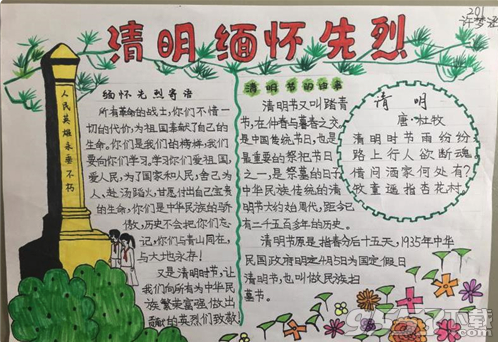 201
许梦
清明缅怀先烈
人民英雄永垂不朽
缅怀先烈寄语
所有革命的战士,你们不惜一
切的代价,为祖国奉献了自己的
生命。你们是我们的榜样,我们
要向你们学习。学习你们爱祖国,
爱人民,为了国家和人民,舍己为
人、赴汤蹈火,甘愿付出自己宝贵
的生命,你们是中华民族的骄
傲,历史不会把你们忘
记,你们与青山同在,
与大地永存!
又是清明时节,让
我们向所有为中华民
族繁荣富强做出
贡献的英烈们致敬!
清明节的由来
清明节又叫踏青
节,在仲春与暮春之交,
是中国传统节日,也是
最重要的祭祀节日
之一,是祭墓的日子
中华民族传统的清
明节大约始周代,距今已
有二千五百多年的历史。
清明节原是指春分后十五天,1935年中华
民国政府明定4月5日为国定假日
清明节,也叫做民族扫
墓节。
清明
唐·杜牧
清明时节雨纷纷
路上行人欲断魂
借问酒家何处有?
牧童遥指杏花村
下载